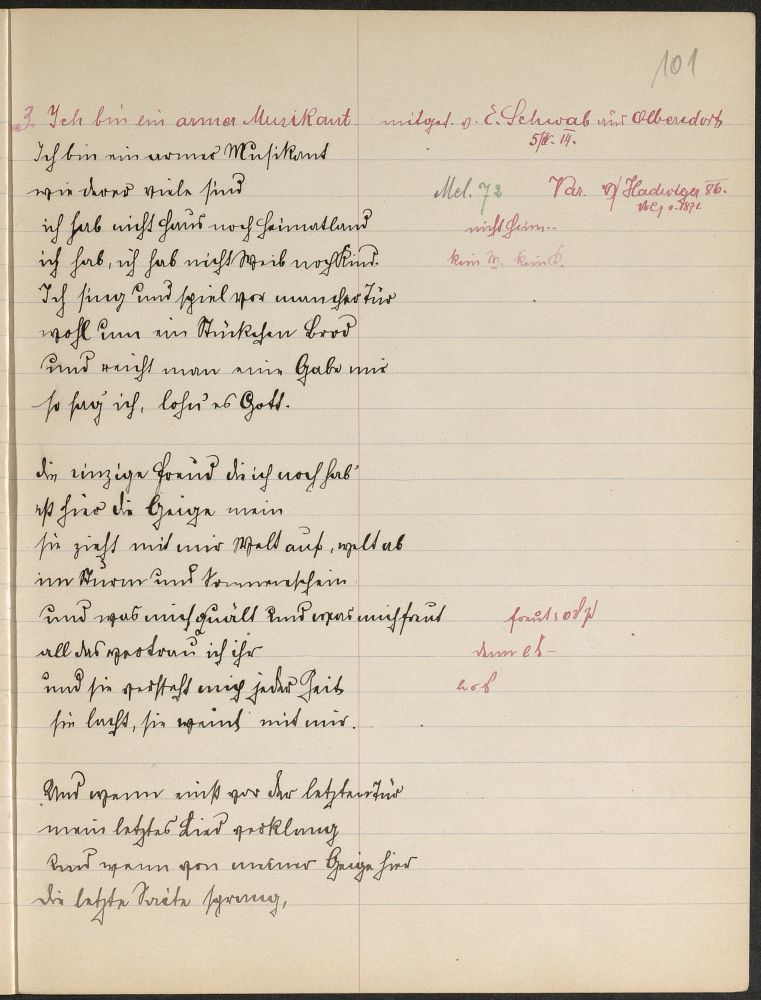 101
3. Ich bin ein armer Musikant. mitget. v. E. Schwab aus Olbersdorf
5/III. 14.
Ich bin ein armer Musikant
wie derer viele sind Mel. 72 Var. v/ Hadwiger 86.
ich hab nicht Haus noch Heimatland nicht Heim..
ich hab, ich hab nicht Weib noch Kind. kein W. kein K.
Ich sing und spiel vor mancher Tür
wohl um ein Stückchen Brod
und reicht man eine Gabe mir
so sag ich, lohn' es Gott.
die einzige Freud die ich noch hab'
ist hier die Geige mein
sie zieht mit mir Welt auf, welt ab
im Sturm und Sonnenschein
und was mich quält und was mich freut freut;
all das vertrau ich ihr denn
und sie versteht mich jeder Zeit
sie lacht, sie weint mit mir.
Und wenn einst vor der letzten Tür
mein letztes Lied verklang
und wenn von meiner Geige hier
die letzte Saite sprang,